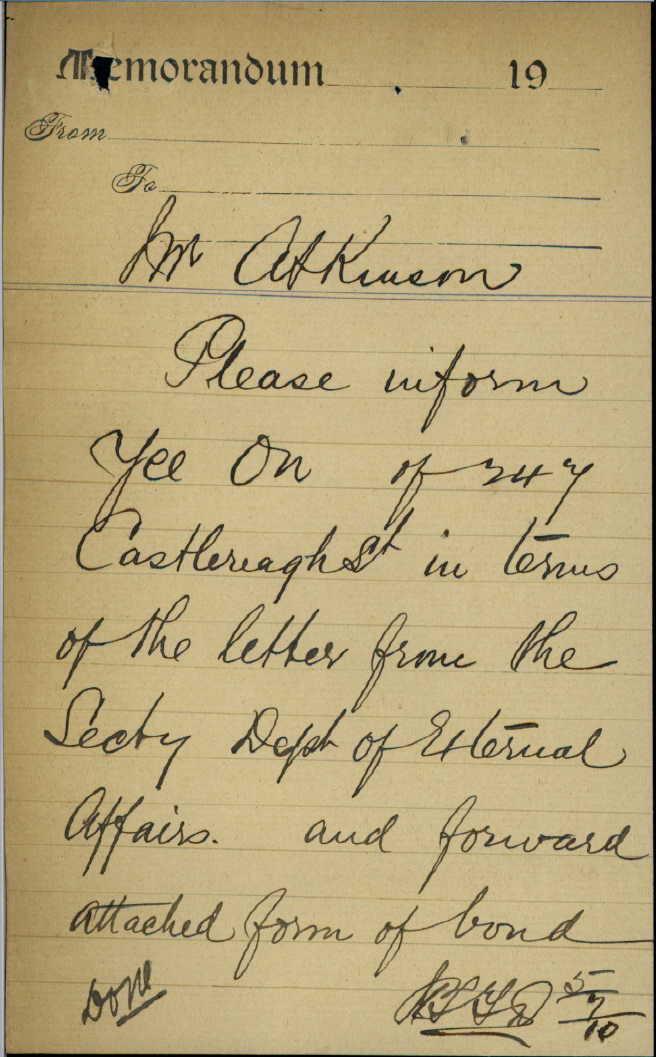 Memorandum 19
From
To
Mr Atkinson
Please inform
Yee On of 247
Castlereagh St in terms
of the letter from the
Secty Dept of External
Affairs. and forward
attached form of bond
Done 5/7/10